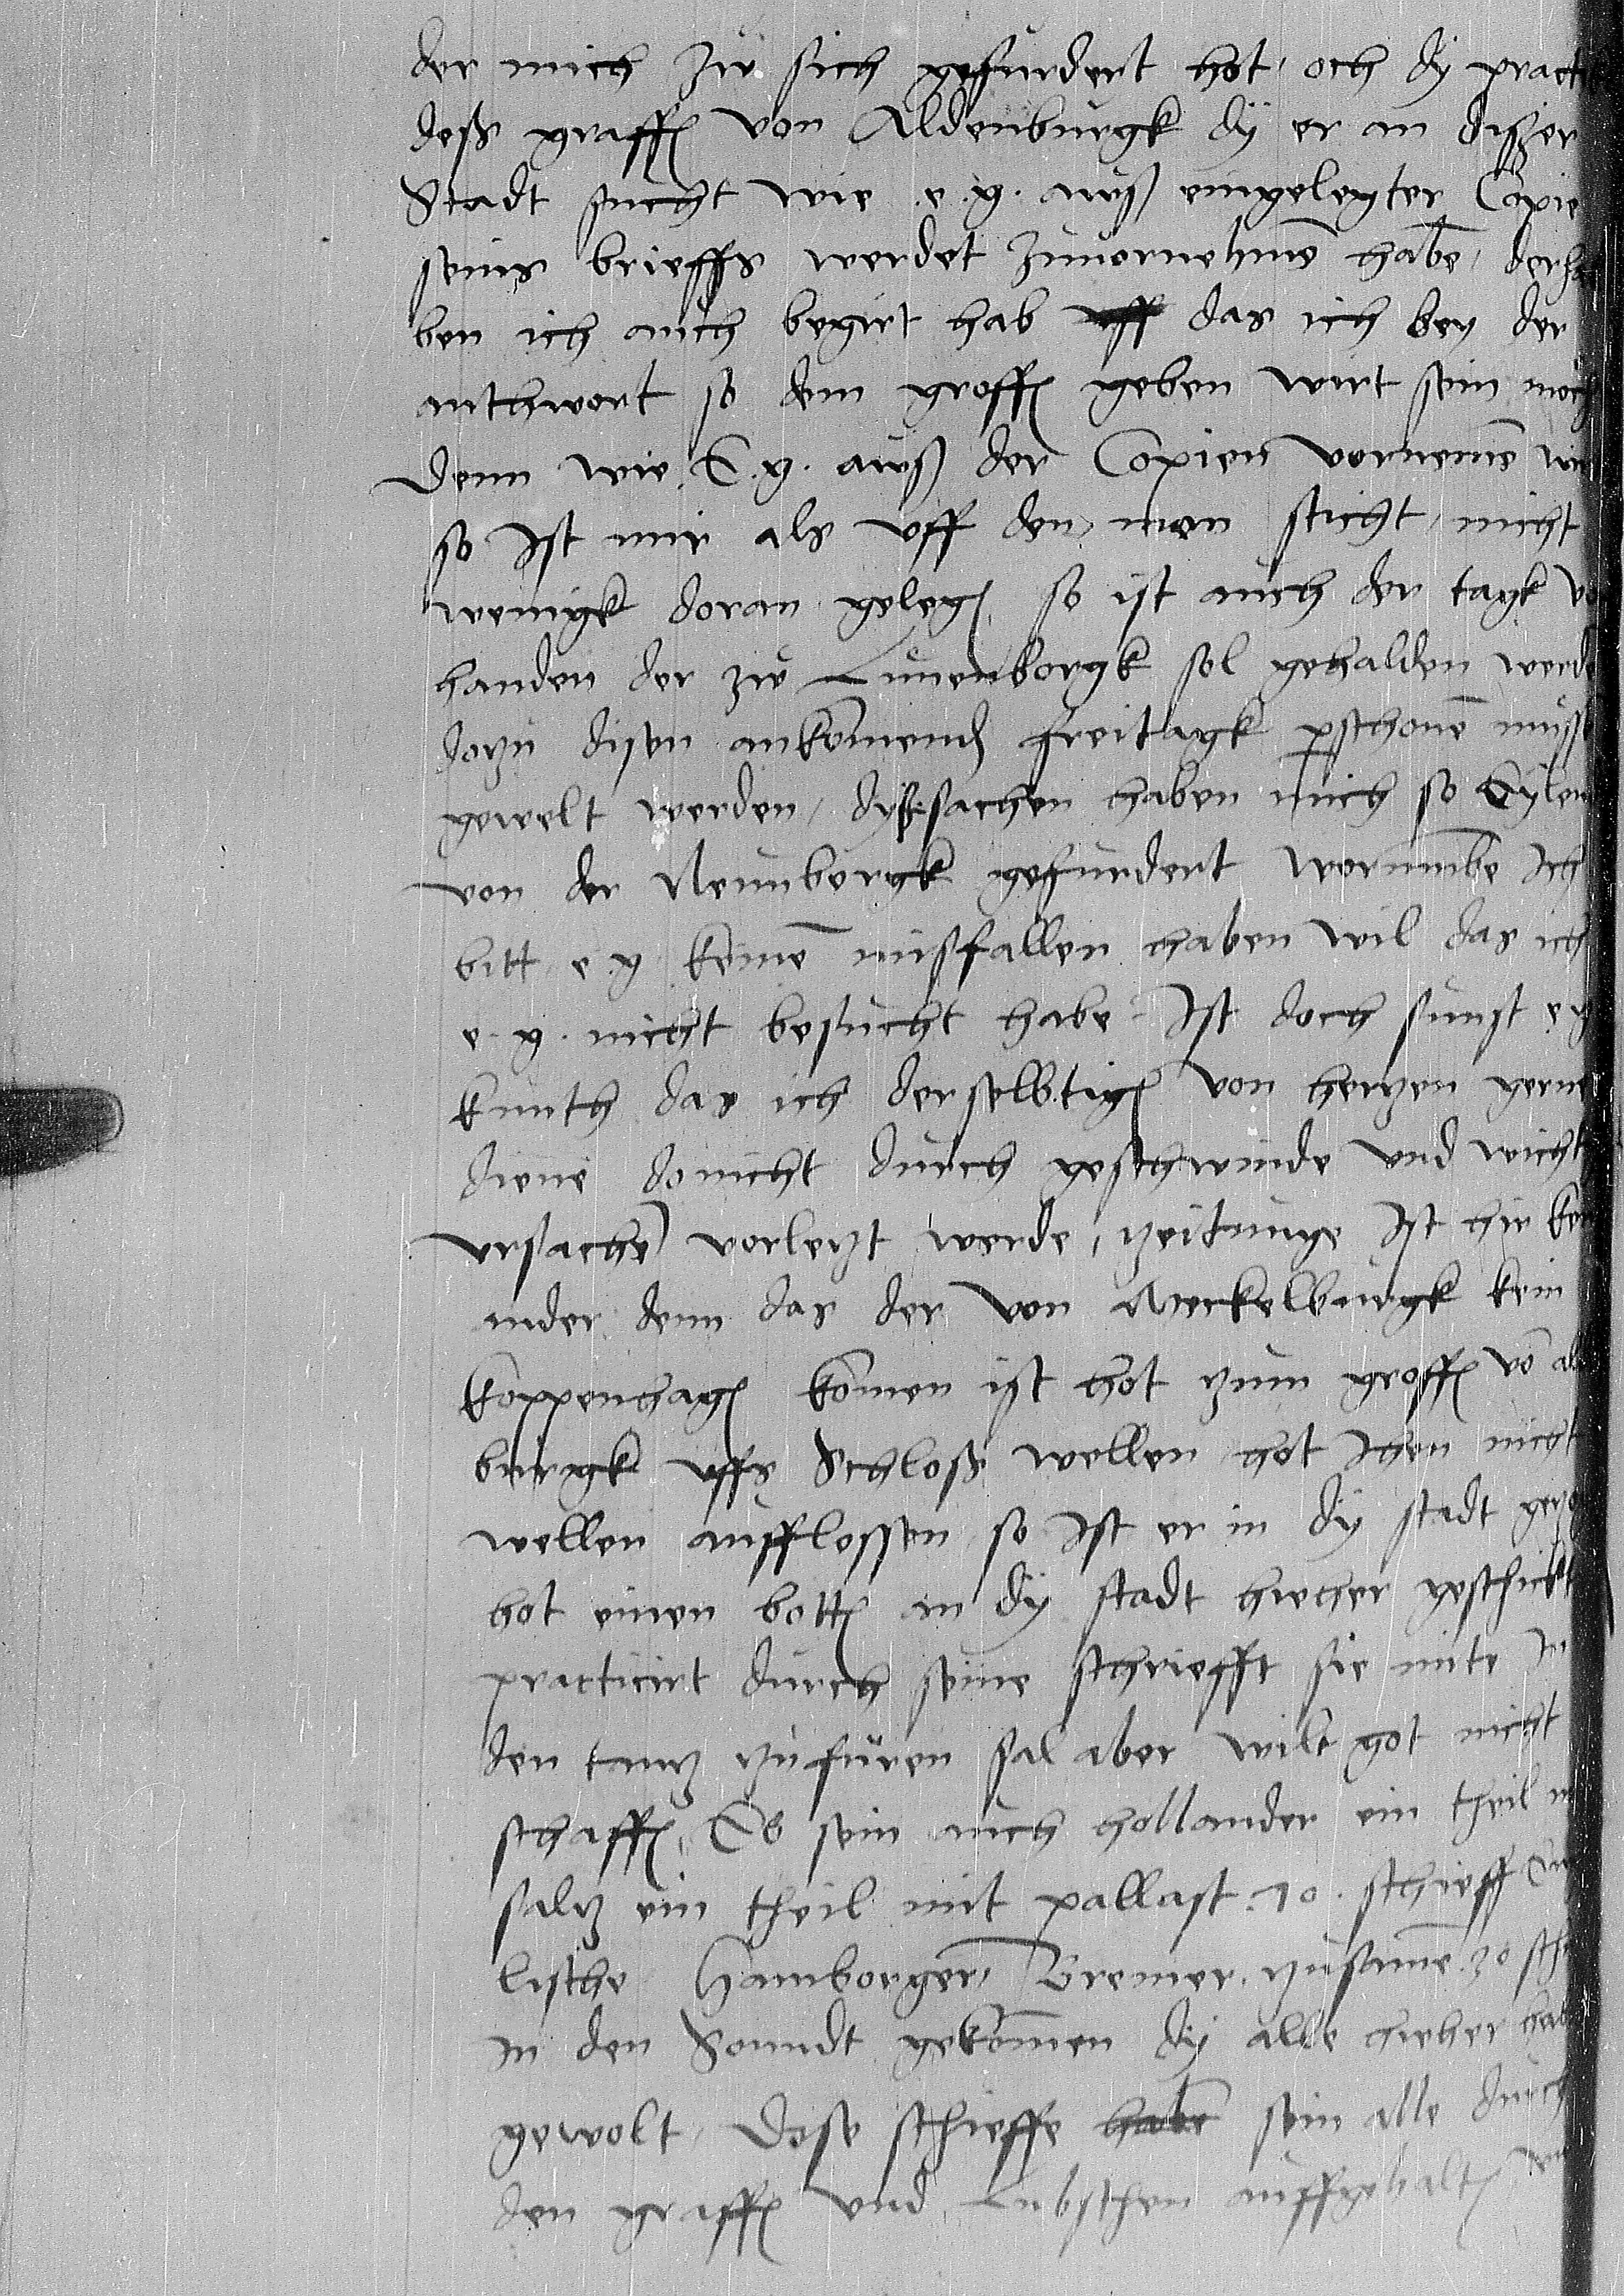 der mich zu sich gefurdert hot, och dÿ pract
deß graffen von Aldenburgk dÿ er an dißer
Stadt sucht wie .e.g. auß eingelegter Copie
seins brieffs werdet zuuornehmē habē, derha
ben ich auch begirt hab uff das ich bey der
anthwort so dem groffen geben wirt sein moch
denn wie E.g. auß der Copien vornemē
so Ist mir als vff den man sticht, nicht
wenigk doran gelegen so ist auch der tagk vo
handen der zu Lunenborgk sol gehalden werde
dozu disen ankomenden freitagk pschonē musse
gewelt werden, dÿße sachen haben mich so Eylen
von der Neunburgk gefurdert worumbe Ich
bitt e.g. keinē mißfallen haben wil das ich
e.g. nicht besucht habe Ist doch sunst e g
kunth das ich derselbtigen von herzen gerne
dienē do nicht durch geschwinde vnd wicht
vrsachē vorlezt werde, zeitunge Ist hir ken
ander denn das der von Meckelburgk kein
Koppenhagen komen ist hot zum groffen vō al
burgk uffs Schloß wellen hot Ihen nicht
wellen aufflossen so Ist er in dÿ stadt gezo
hot einen botten an dÿ stadt hieher geschickt
practicirt durch seine schriefft sie mite In
den tanz zufuren sal aber wilt got nicht
schaffen, Es sein auch hollander ein theil m
salz ein theil mit pallast .10. schieff
lische Hamborger, Bremer, zusamē .30 sch
in den Sundt gekomen dÿ alle hieher habe
gewolt, Dise schieffe habē sein alle durch
den graffen vnd Lubschen auffgehalten